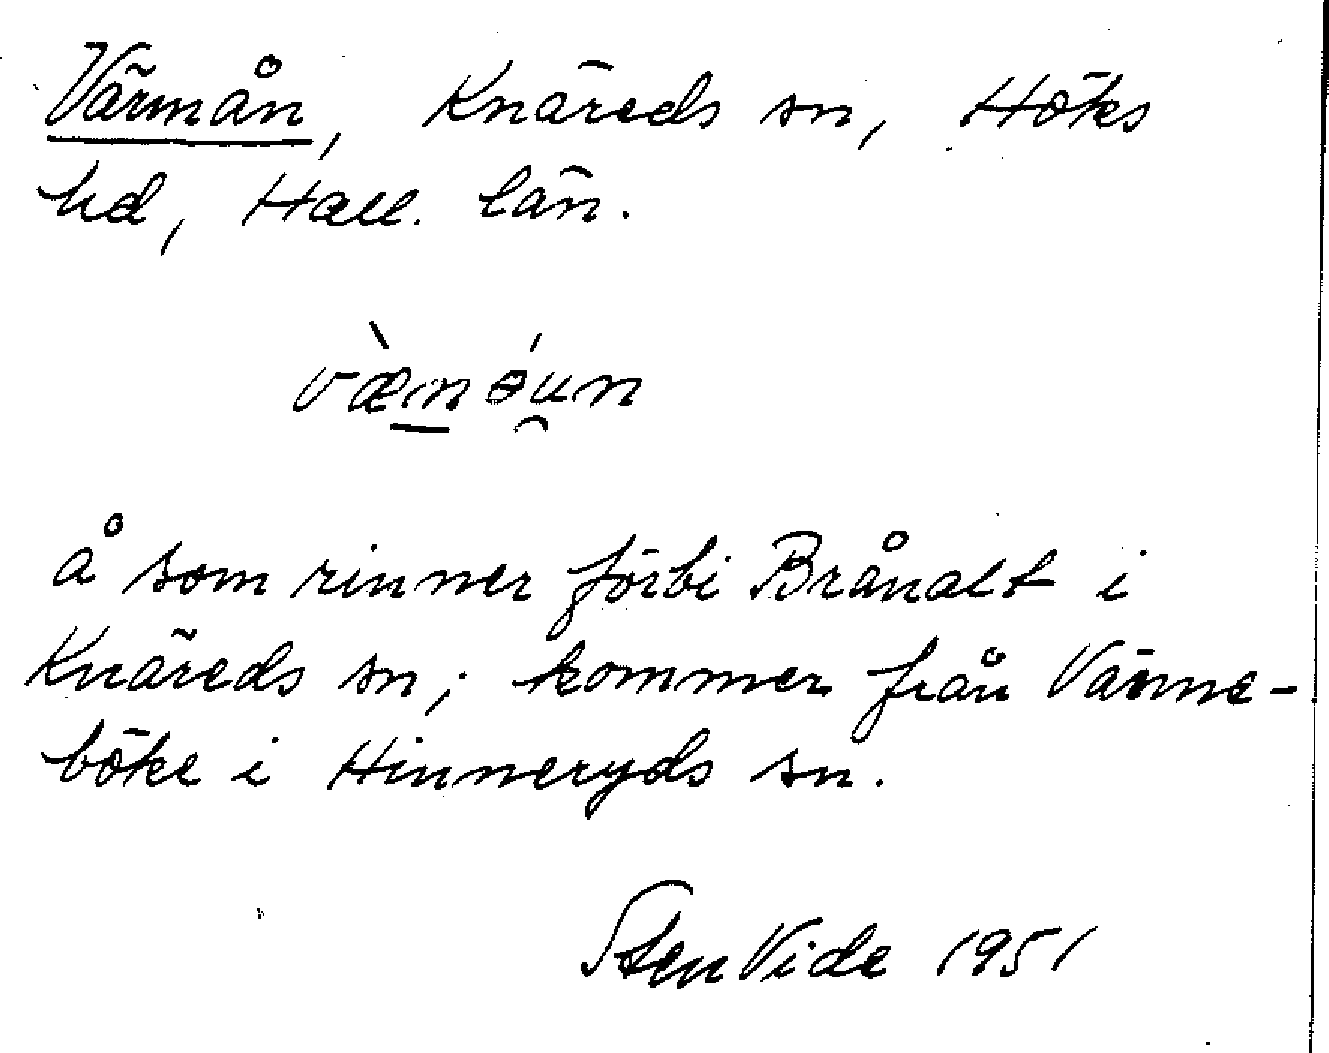 Värmån, Knäreds sn, Höks
hd, Hall. län.
væ̀mǝ́u̯n
å som rinner förbi Brånalt i
Knäreds sn; kommer från Värme-
böke i Hinneryds sn.
Sten Vide 1951